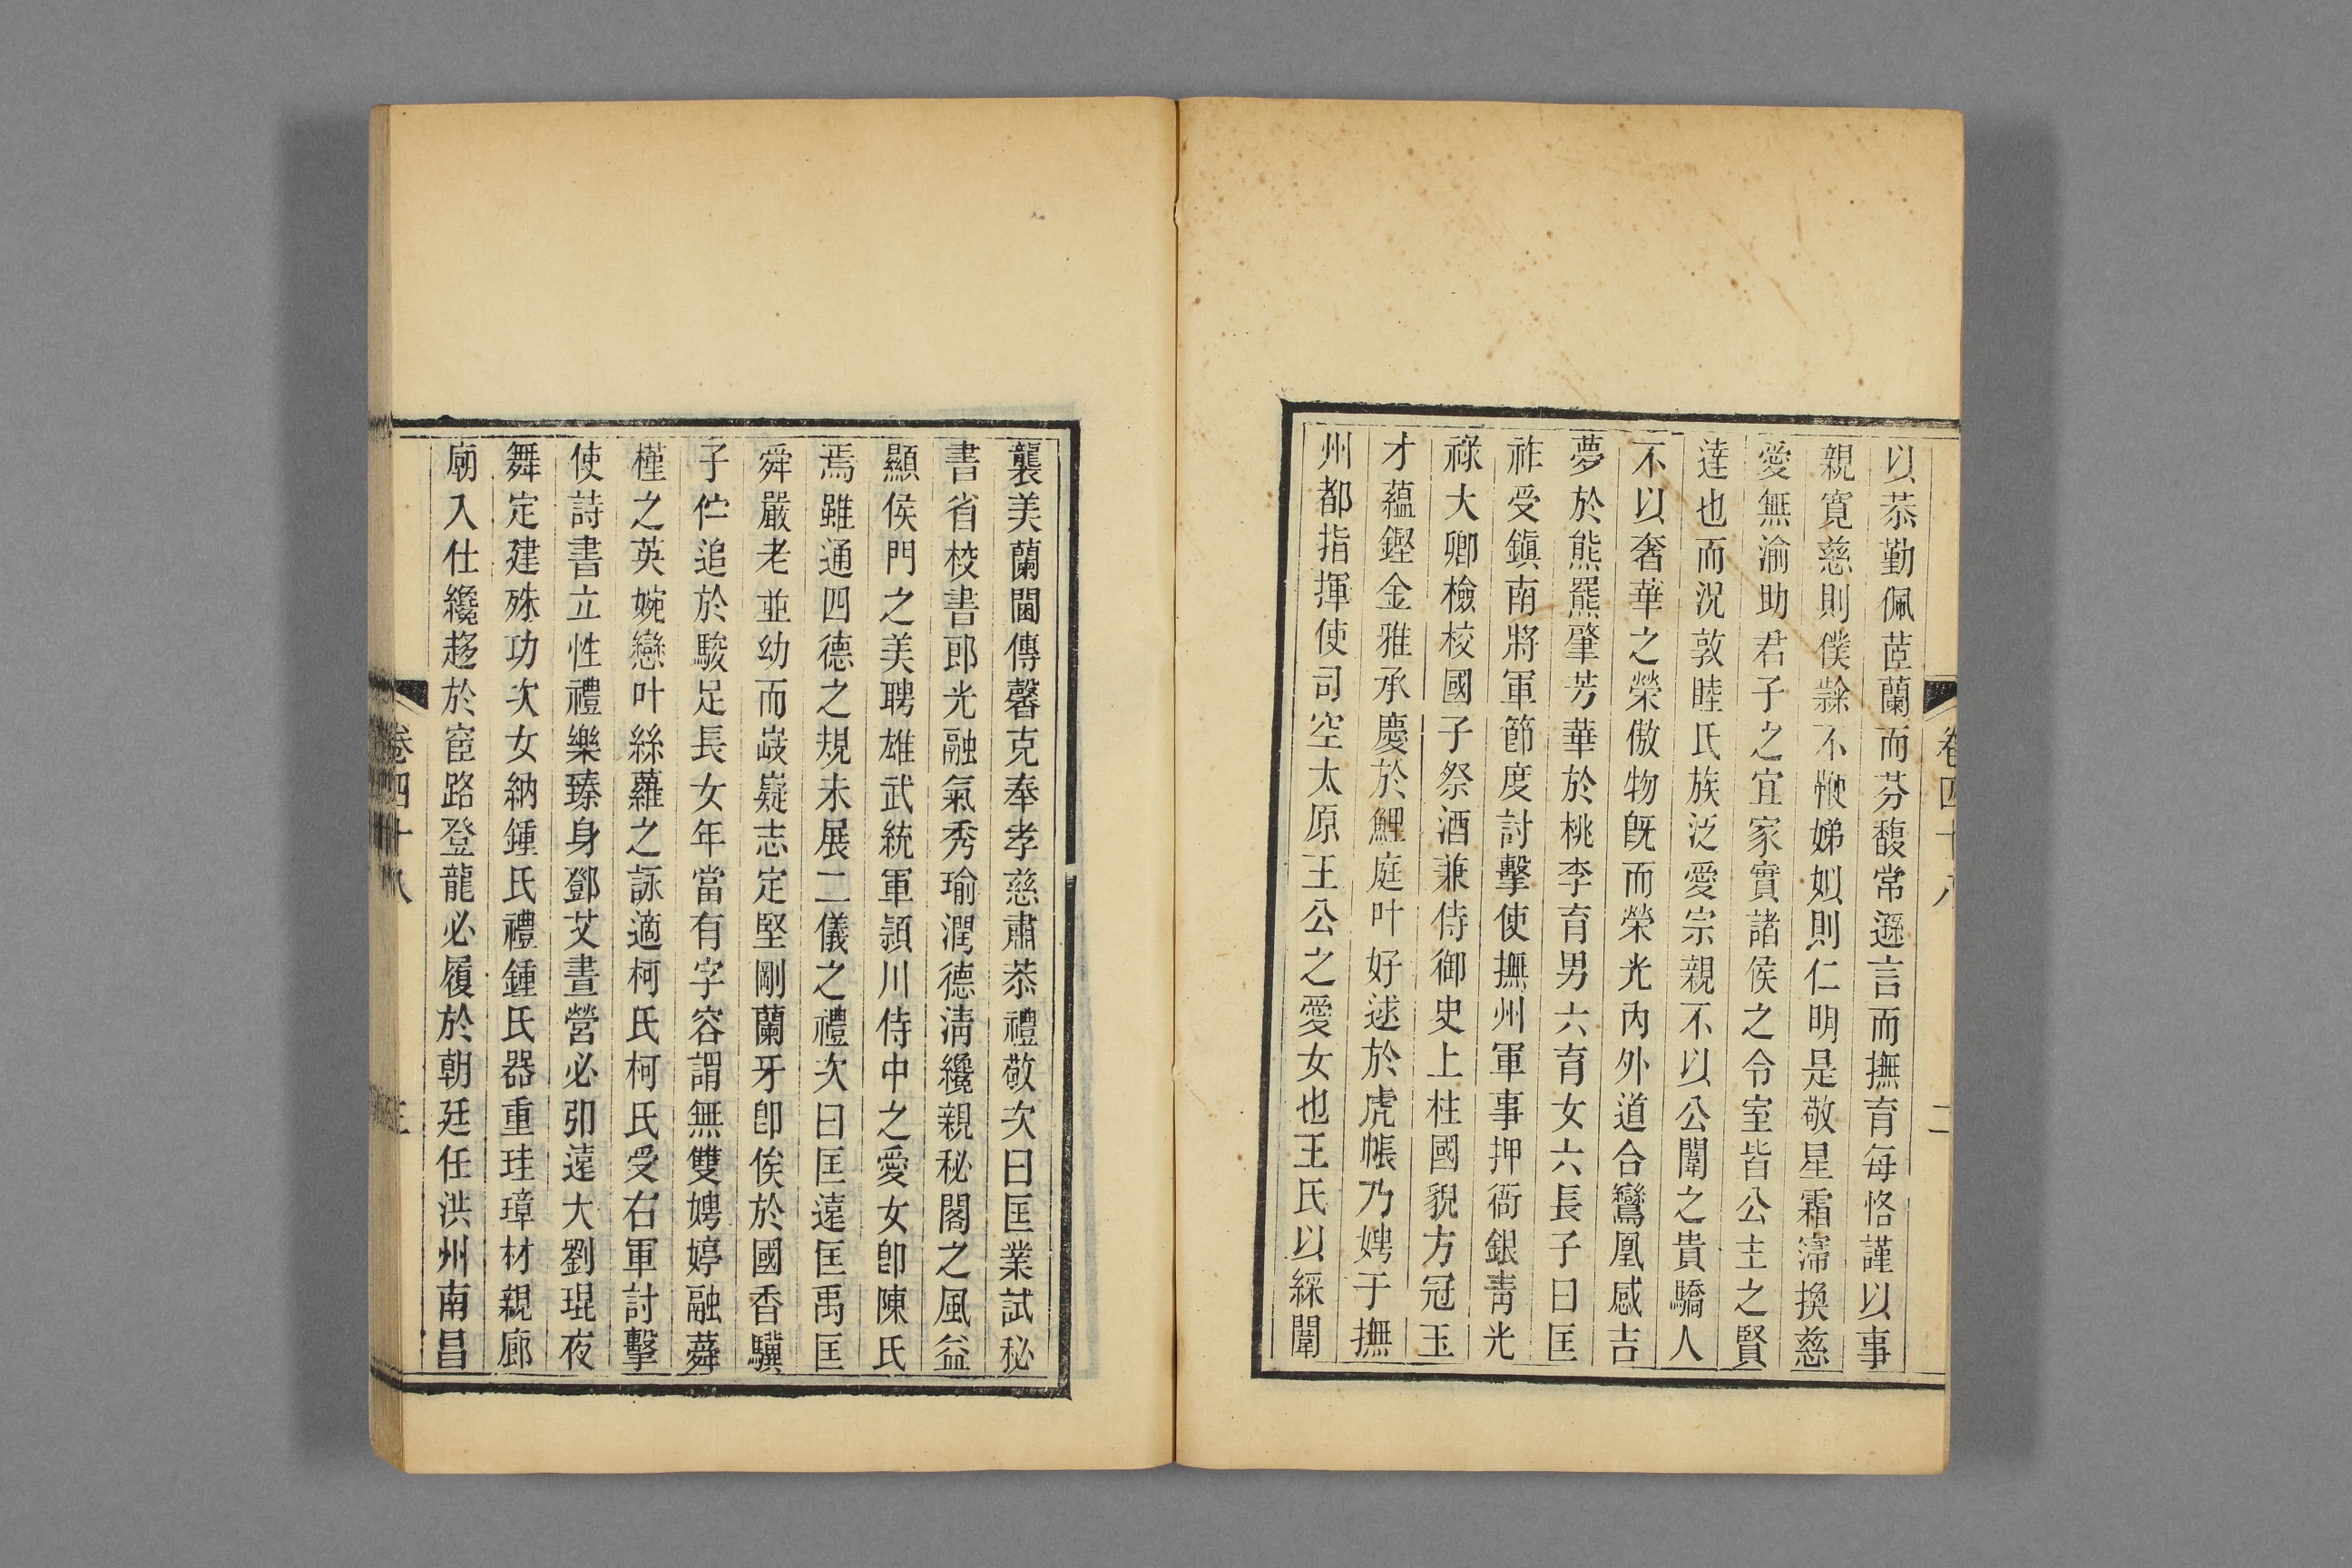 以恭勤佩茝蘭而芬馥常遜言而撫育每恪謹以事
親寬慈則僕隸不鞭娣姒則仁明是敬星霜 換慈
愛無渝助君子之宜家實諸侯之令室皆公主之賢
達也而況敦睦氏族泛愛宗親不以公闈之貴驕人
不以奢華之榮傲物旣而榮光內外道合鸞凰感吉
夢於熊羆肇芳華於桃李育男六育女六長子曰匡
祚受鎮南將軍節度討擊使撫州軍事押衙銀靑光
祿大卿檢校國子祭酒兼侍御史上柱國貌方冠玉
才蘊鏗金雅承慶於鯉庭叶好逑於虎帳乃娉于撫
州都指揮使司空太原王公之愛女也王氏以綵闈
卷四十八
二
襲美蘭閫傳馨克奉孝慈肅恭禮敬次曰匡業試秘
書省校書郎光融氣秀瑜潤德淸纔親秘閣之風益
顯侯門之美聘雄武統軍潁川侍中之愛女卽陳氏
焉雖通四德之規未展二儀之禮次曰匡遠匡禹匡
舜嚴老並幼而嶷志定堅剛蘭牙卽俟於國香驥
子伫追於駿足長女年當有字容謂無雙娉婷融蕣
槿之英婉戀叶絲蘿之詠適柯氏柯氏受右軍討擊
使詩書立性禮樂臻身鄧艾晝營必卯遠大劉琨夜
舞定建殊功次女納鍾氏禮鍾氏器重珪璋材親廊
廟入仕纔趍於宦路登龍必履於朝廷任洪州南昌
卷四十八
三